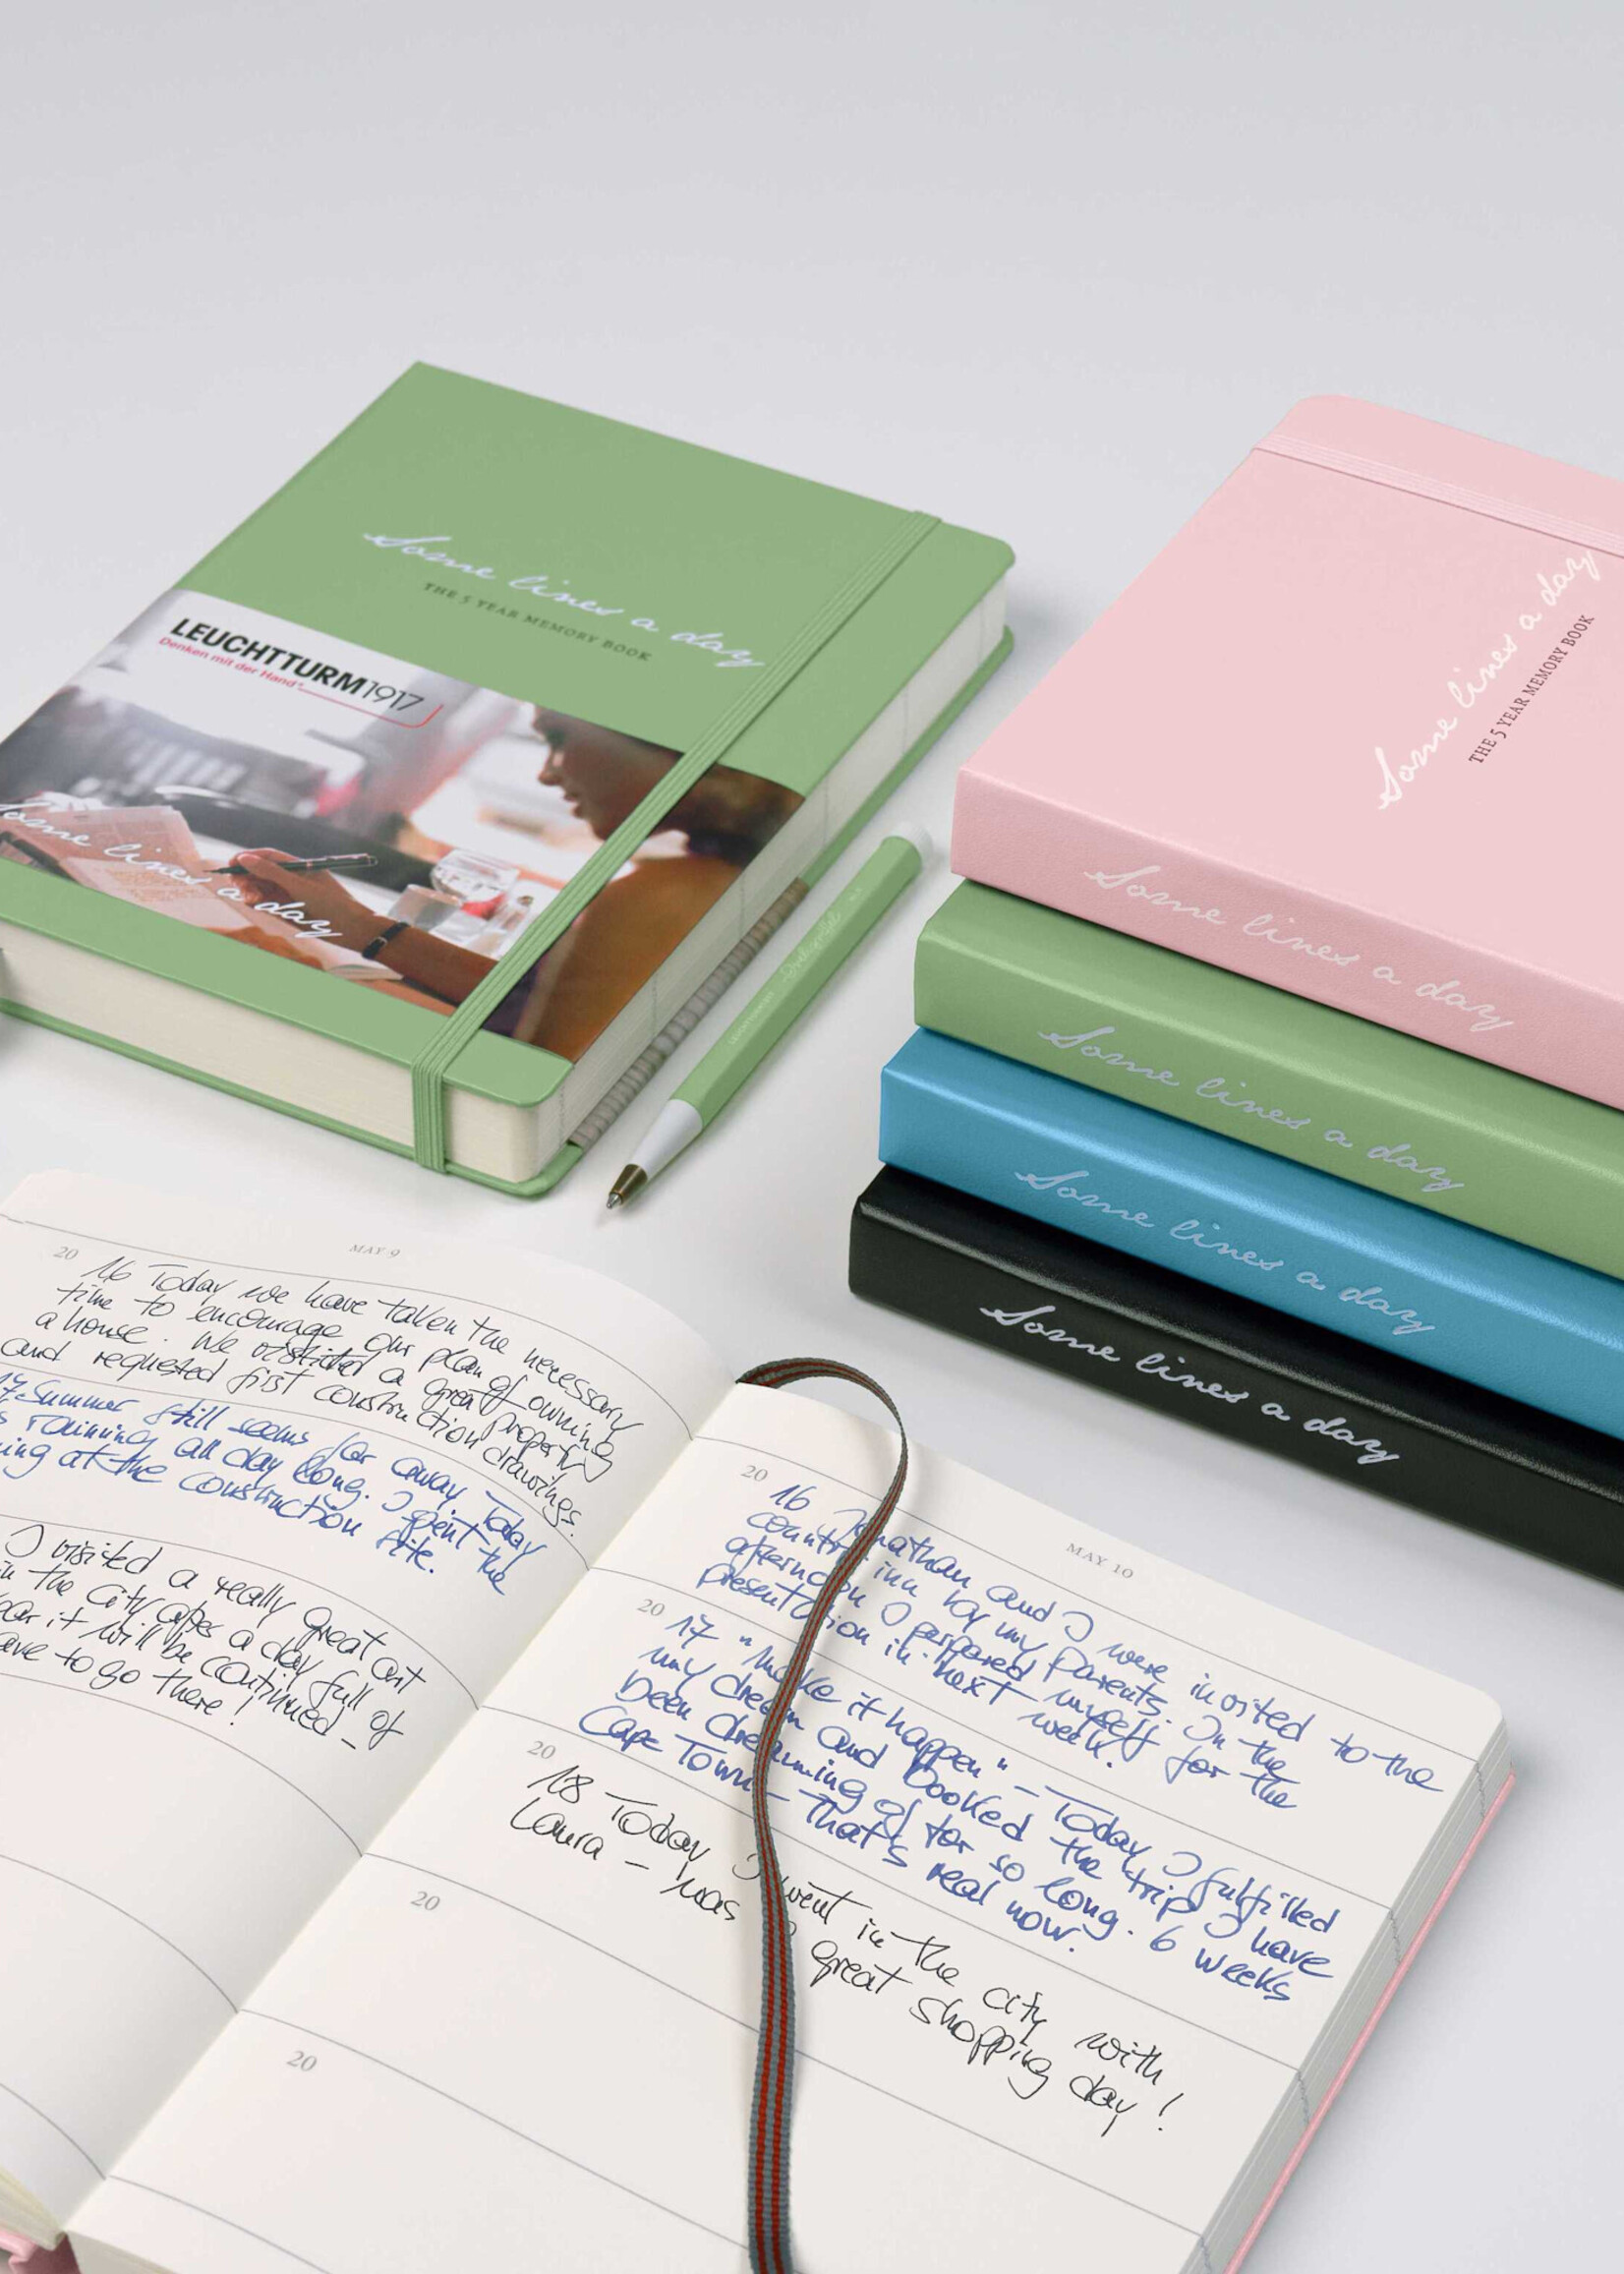 Some lines a day
THE 5 YEAR MEMORY BOOK
LEUCHTTURM1917
Denken mit der Hand®
Some lines a day
Some lines a day
THE 5 YEAR MEMORY BOOK
Some lines a day
Some lines a day
Some lines a day
Some lines a day
MAY 9
20 16 Today we have taken the necessary
time to encourage our plan of owning
a house. We visited a great property
and requested first construction drawings.
17-Summer still seems far away. Today
raining all day long. I spent the
at the construction site.
I visited a really great art
in the City after a day full of
it will be continued -
to go there!
MAY 10
20 16 Jonathan and I were invited to the
country inn by my Parents. In the
afternoon I perpared myself for the
presentation in next week.
20 17 "Make it happen" - Today I fulfilled
my dream and booked the trip I have
been dreaming of for so long. 6 weeks
Cape Town - That's real now.
20 18 Today I went in the city with
Laura - was a great shopping day!
20
20